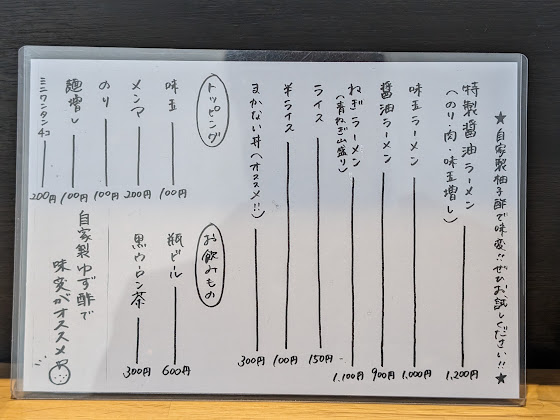 ★自家製柚子酢で味変!!ぜひお試しください!!★
特製醤油ラーメン 1,200円
(のり・肉・味玉増し)
味玉ラーメン 1,000円
醤油ラーメン 900円
ねぎラーメン 1,100円
(青ねぎ山盛り)
ライス 150円
半ライス 100円
まかない丼(オススメ!!) 300円
トッピング
味玉 100円
メンマ 200円
のり 100円
麺増し 100円
ミニワンタン4コ 200円
お飲みもの
瓶ビール 600円
黒ウーロン茶 300円
自家製ゆず酢で
味変がオススメ